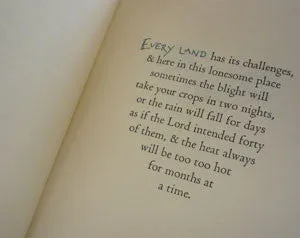 EVERY LAND has its challenges,
& here in this lonesome place
sometimes the blight will
take your crops in two nights,
or the rain will fall for days
as if the Lord intended forty
of them, & the heat always
will be too too hot
for months at
a time.